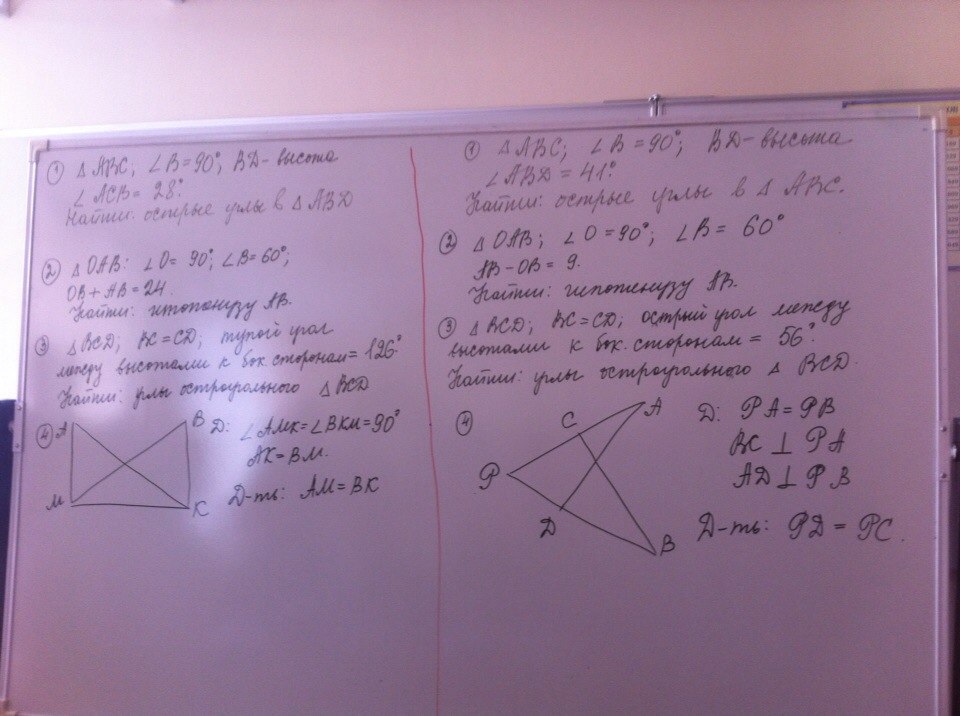 ① △ ABC; ∠B=90°; BD- высота
∠ ACB = 28°.
Найти: острые углы в △ ABD
② △ OAB: ∠O= 90°; ∠B=60°;
OB + AB = 24.
Найти: гипотенузу AB.
③ △ BCD; BC = CD; тупой угол
между высотами к бок. сторонам = 126°.
Найти: углы остроугольного △ BCD
④ A B Д: ∠AMK=∠BKM=90°
AK=BM.
M K Д-ть: AM=BK
① △ ABC; ∠B = 90°; BD- высота
∠ ABD = 41°.
Найти: острые углы в △ ABC.
② △ OAB; ∠O=90°; ∠B= 60°
AB-OB= 9.
Найти: гипотенузу AB.
③ △ BCD; BC=CD; острый угол между
высотами к бок. сторонам = 56°.
Найти: углы остроугольного △ BCD.
④ C A Д: PA=PB
BC ⊥ PA
P AD ⊥ PB
D B Д-ть: PD = PC.